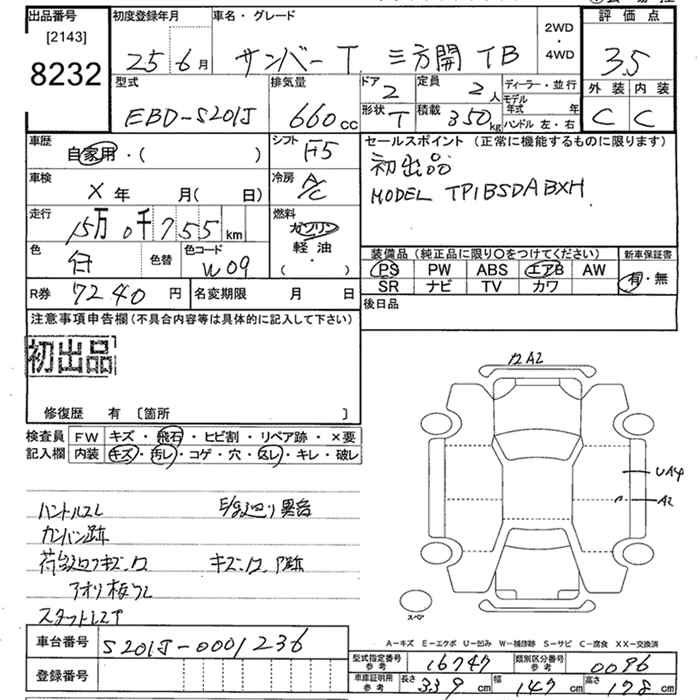 出品番号 初度登録年月 車名・グレード 2WD・4WD 評価点
[2143]
8232 25年6月 サンバーT 三方開 TB 3.5
型式 排気量 ドア 2 定員 2人 ディーラー・並行 外装 内装
EBD-S201J 660cc 形状 T 積載 350kg モデル年式 年 ハンドル 左・右 C C
車歴 自家用・( ) シフト F5 セールスポイント (正常に機能するものに限ります)
初出品
車検 X 年 月(日) 冷房 A/C MODEL TP1BSDABXH
走行 15万0千755km 燃料 ガソリン
軽油
( )
色 白 色替 色コード W09
装備品 (純正品に限り〇をつけてください) 新車保証書
PS PW ABS エアB AW 有・無
SR ナビ TV カワ
R券 7240円 名変期限 月 日 後日品
注意事項申告欄 (不具合内容等は具体的に記入して下さい)
初出品
修復歴 有 〔箇所 〕
検査員 FW キズ・飛石・ヒビ割・リペア跡・×要
記入欄 内装 キズ・汚レ・コゲ・穴・スレ・キレ・破レ
ワA2
UA4
A2
ハンドルスレ
カンバン跡
スペア
A-キズ E-エクボ U-凹み W-補修跡 S-サビ C-腐食 XX-交換済
車台番号 S201J-0001236
型式指定番号 参考 16747 類別区分番号 参考 0096
登録番号
車庫証明用 参考 長さ 339cm 幅 147cm 高さ 178cm